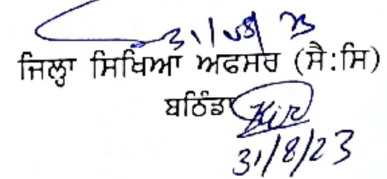 31/08/23
ਜਿਲ੍ਹਾ ਸਿੱਖਿਆ ਅਫਸਰ (ਸੈ:ਸਿ)
ਬਠਿੰਡਾ
31/8/23